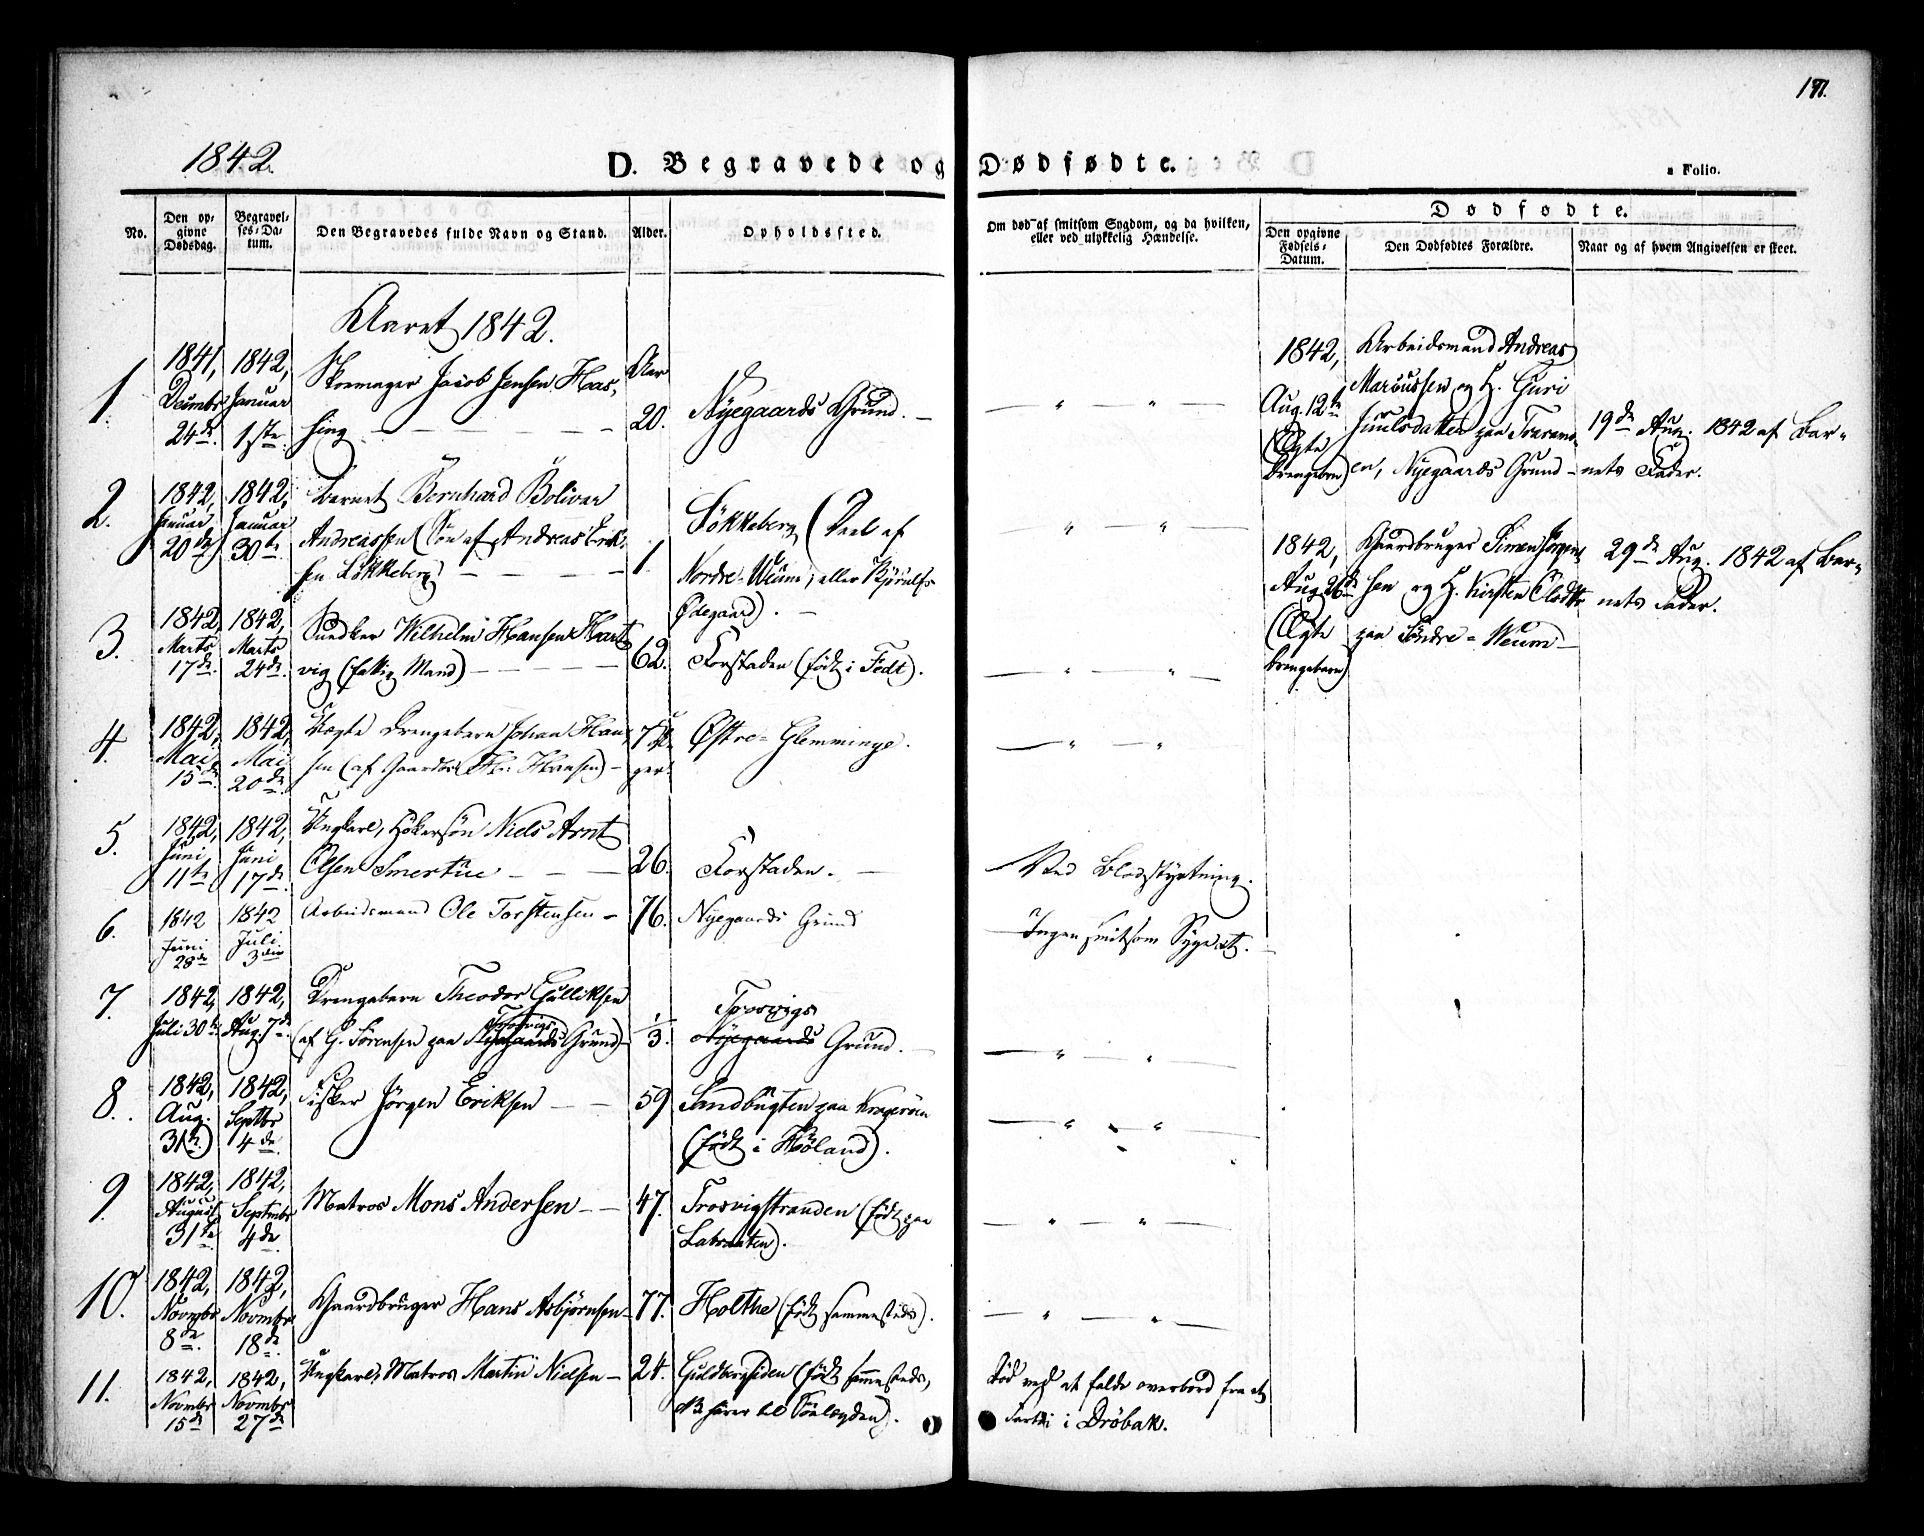 191.
1842.
D. Begravede og Dødfødte.
Folio.
No.
Den opgivne Dødsdag.
Begravelses-Datum.
Den Begravedes fulde Navn og Stand.
Alder.
Opholdssted.
Om død af smitsom Sygdom, og da hvilken, eller ved ulykkelig Hændelse.
Dødfødte.
Den opgivne Fødsels-Datum.
Den Dødfødtes Forældre.
Naar og af hvem Angivelsen er skeet.
Aaret 1842.
1. 1841, Decembr 24de. 1842, Januar 1ste. Skomager Jacob Jensen Has-
sing Aar 20. Nyegaards Grund.
2. 1842, Januar 20de 1842, Januar 30te Barnet Bernhard Bolivar
Andreassen (Søn af Andreas Erik-
sen Løkkeberg) 1. Løkkeberg (Deel af
Nordre-Weum, eller
Ødegaard).
3. 1842, Marts 17de. 1842, Marts 24de. Snedker Wilhelm Hansen Hart-
vig (fattig Mand) 62. Forstaden (født i Fredt).
4. 1842, Mai 15de. 1842, Mai 20de. Uægte Drengebarn Johan Han-
sen (af Gaardbr. Hansen) 7 Da-
ger. Østre-Glemminge.
5. 1842, Juni 11te 1842, Juni 17de. Ungkarl, Høkersøn Niels Arnt
Olsen Smertue 26. Forstaden. Ved Blodstyrtning.
6. 1842 Juni 28de 1842 Juli 3die Arbeidsmand Ole Torstensen 76. Nyegaards Grund Ingen smitsom Sygd.
7. 1842, Juli 30te 1842, Aug. 7de. Drengebarn Theodor Gulliksen
(af G. Sørensen paa Nyegaards Trosvigs Grund) 1/3. Trosvigs
Nyegaards Grund.
8. 1842, Aug. 31te. 1842, Septbr 4de. Fisker Jørgen Eriksen 59 Sandbugten paa Kragerøen
(født i Høland).
9. 1842, August 31te 1842, Septmbr 4de. Matros Mons Andersen 47. Trosvigstranden (født paa
).
10. 1842, Novmbr 8de. 1842, Novmbr 18de. Gaardbruger Hans Asbjørnsen 77. Holthe (født sammesteds).
11. 1842, Novmbr 15de 1842, Novmbr 27de Ungkarl, Matros Martin Nielsen 24. Guldbergsiden (født sammesteds,
hører til Søelægden). Død ved at falde overbord fra et
Fartøi i Drøbak.
1842,
Aug. 12te
(Ægte
Drengebarn)
Arbeidsmand Andreas
Marcussen og H. Guri
Juulsdatter paa Traran-
en, Nyegaards Grund
19de Aug. 1842 af Bar-
nets Fader.
1842,
Aug. 26de
(Ægte
Drengebarn)
Gaardbruger Simen Jørgen-
sen og H. Kirsten Olsdtr
paa Søndre-Weum
29de Aug. 1842 af Bar-
nets Fader.